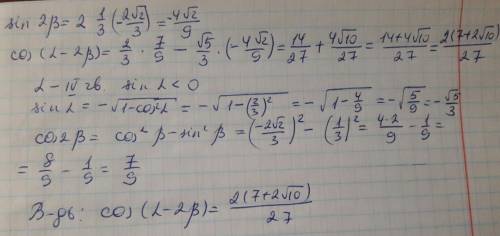 sin 2β = 2 · 1/3 (-2√2/3) = -4√2/9
cos(α-2β) = 2/3 · 7/9 - √5/3 · (-4√2/9) = 14/27 + 4√10/27 = 14+4√10/27 = 2(7+2√10)/27
α - IV чв. sin α < 0
sin α = -√1-cos²α = -√1-(2/3)² = -√1-4/9 = -√5/9 = -√5/3
cos 2β = cos² β - sin² β = (-2√2/3)² - (1/3)² = 4·2/9 - 1/9 =
= 8/9 - 1/9 = 7/9
В-дь: cos(α-2β) = 2(7+2√10)/27